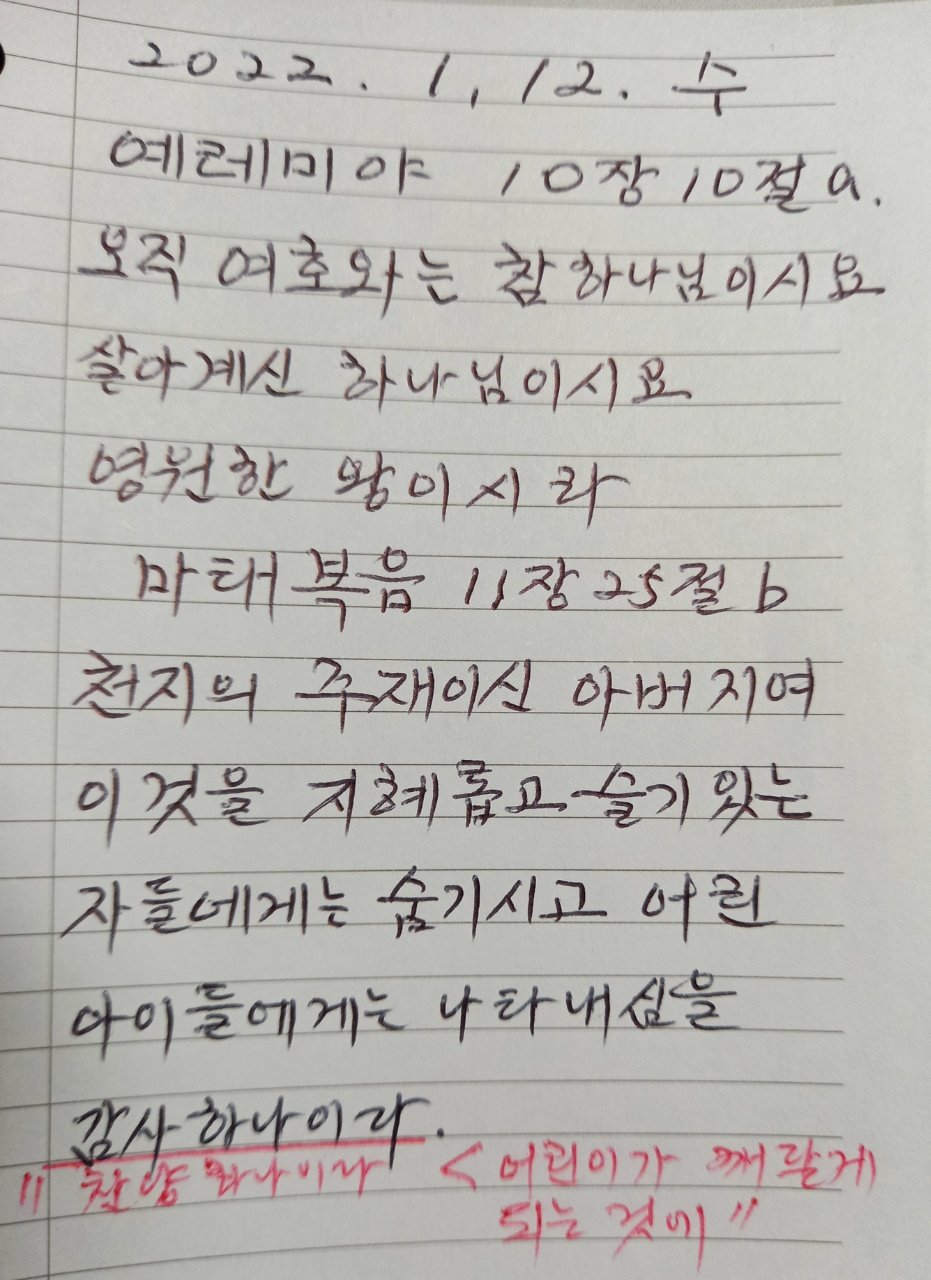 2022. 1, 12. 수
예레미야 10장 10절 a.
오직 여호와는 참 하나님이시요
살아계신 하나님이시요
영원한 왕이시라
마태복음 11장 25절 b
천지의 주재이신 아버지여
이것을 지혜롭고 슬기있는
자들에게는 숨기시고 어린
아이들에게는 나타내심을
감사하나이다.
" 찬양하나이다 < 어린이가 깨닫게
되는 것에 "